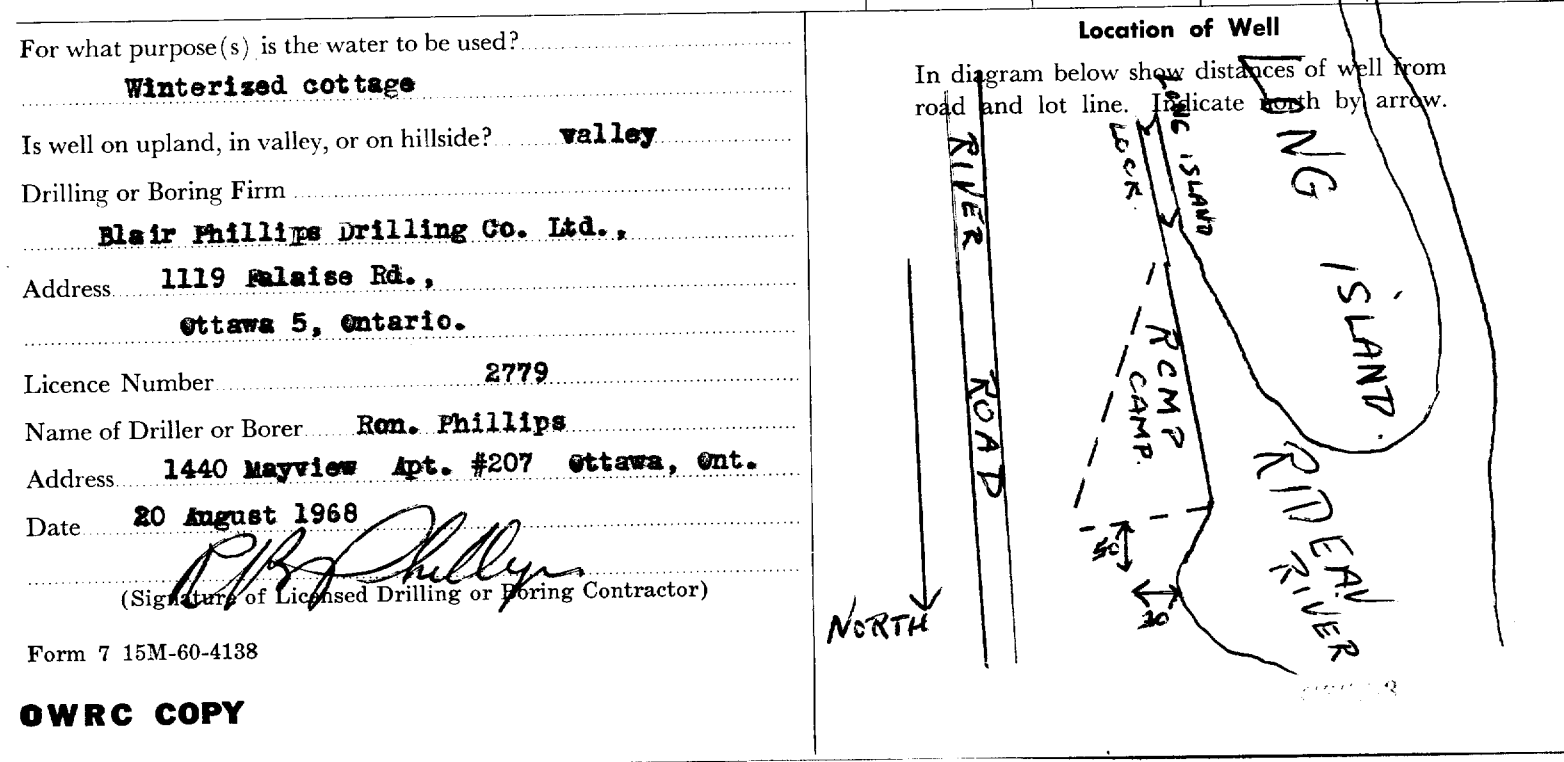 For what purpose(s) is the water to be used?
Winterized cottage
Is well on upland, in valley, or on hillside? valley
Drilling or Boring Firm
Blair Phillips Drilling Co. Ltd.,
Address 1119 Falaise Rd.,
Ottawa 5, Ontario.
Licence Number 2779
Name of Driller or Borer Ron. Phillips
Address 1440 Mayview Apt. #207 Ottawa, Ont.
Date 20 August 1968
(Signature of Licensed Drilling or Boring Contractor)
Form 7 15M-60-4138
OWRC COPY
Location of Well
In diagram below show distances of well from
road and lot line. Indicate north by arrow.
RIVER ROAD
LONG ISLAND
LOCK
LONG ISLAND
RCMP
CAMP.
RIDEAU
RIVER
50'
NORTH